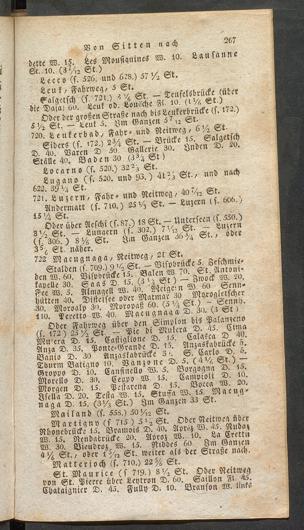 Von Sitten nach 267
dette W. 15. Les Mousquines W. 10. Lausanne
St. 10. (3 7/12 St.)
Lecco (s. 526. und 628.) 57 1/2 St.
Leuk, Fahrweg, 5 St.
Salgetsch (s. 721.) St. — Teufelsbrücke (über
die Dala) 60. Leuk od. Louäche Fl. 10. (1 1/6 St.)
Oder der großen Straße nach bis Leukerbrücke (s. 172.)
5 1/2 St. — Leuk 5. Im Ganzen 5 7/12 St.
720. Leukerbad, Fahr- und Reitweg, 6 1/2 St
Siders (s. 172.) 2 3/4 St. — Brücke 15. Salgetsch
D. 40. Varen D 50 Gallerie 30. Inden D. 20.
Ställe 40. Baden 30 (3 3/4 St)
Locarno (s. 520.) 32 2/3 St.
Lugano (s. 520. und 93.) 41 St., und nach
622. 39 1/4 St.
721. Luzern, Fahr- und Reitweg, 40 7/12 St.
Andermatt (s. 710.) 25 1/3 St — Luzern (s. 606.)
15 1/4 St.
Oder über Aeschi (s. 87.) 18 St. — Unterseen (s. 550.)
3 1/2 St. — Lungern (s. 302.) 7 1/12 St. — Luzern
(s. 306.) 8 1/6 St. Im Ganzen 36 3/4 St., oder
St. näher.
722 Macugnaga, Reitweg, 21 St.
Stalden (s. 709.) 9 1/6 St. — Vispbrücke 5. Zeschmie-
den W. 60. Vispbrücke 15. Balen W. 70. St. Antoni-
kapelle 30. Saas D. 15. (3 1/4 St) — Zwock W. 20.
Zee W. 5. Almagell W. 40. Zeigern W 60. Senn-
hütten 40. Distelsee oder Matmar 30 Matogletscher
30. Moroalp 30. Moropaß 60. (5 1/4 St) — Sennh.
110. Peretto W. 40. Macugnaga D 30. (3 St)
Oder Fahrweg über den Simplon bis Palanzeno
(s. 172) 25 1/2 St. — Pie di Mulera D. 45. Cima
Mulera D. 15. Castiglione D. 15. Calasca D. 40.
Anza D. 35. Ponte-Grande D. 15. Anzascabrücke 5.
Vanio D. 30 Anzascabrücke 5. S. Carlo D. 5.
Thurm Battigio 10. Vanzone D. 5. (4 1/2 St) —
Groppo D. 10. Canfinello W. 5. Borgogna D. 15.
Morello D. 30. Ceppo W. 15. Campioli D. 10.
Morgen D. 15. Pestarena D. 15. Borca W. 20.
Isella D. 20. Testa W. 15. Stuffa W. 15. Macug-
naga D. 15. (3 1/3 St) Im Ganzen 33 St.
Mailand (s. 555.) 50 1/12 St.
Martigny (s 715) 5 1/2 St. Oder Reitweg über
Rhonebrücke 15. Bramois D. 40. Aproz W. 45. Nudaz
W. 15. Nendabrücke 20. Aproz W. 10. La Crettu
W. 30. Vieudray W. 15. Riddes 60 Im Ganzen
4 1/6 St., oder 1 St. weiter als der Straße nach.
Matterjoch (s. 710.) 22 St.
St. Maurice (s 719.) 8 1/2 St. Oder Reitweg
von St. Pierre über Leytron D. 60. Saillon Fl. 45.
Chataignier D. 45. Fully D. 10. Branson W. links